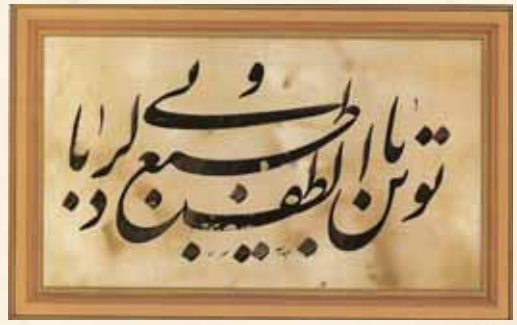 تو با این لطف طبع و دلربایی